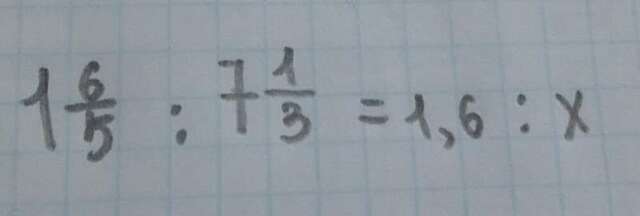 1 6/5 : 7 1/3 = 1,6 : x